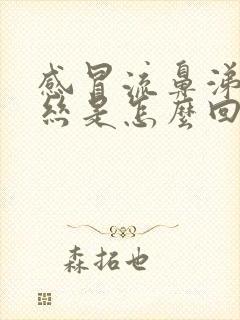 感冒流鼻涕
絲是怎麼回
森拓也